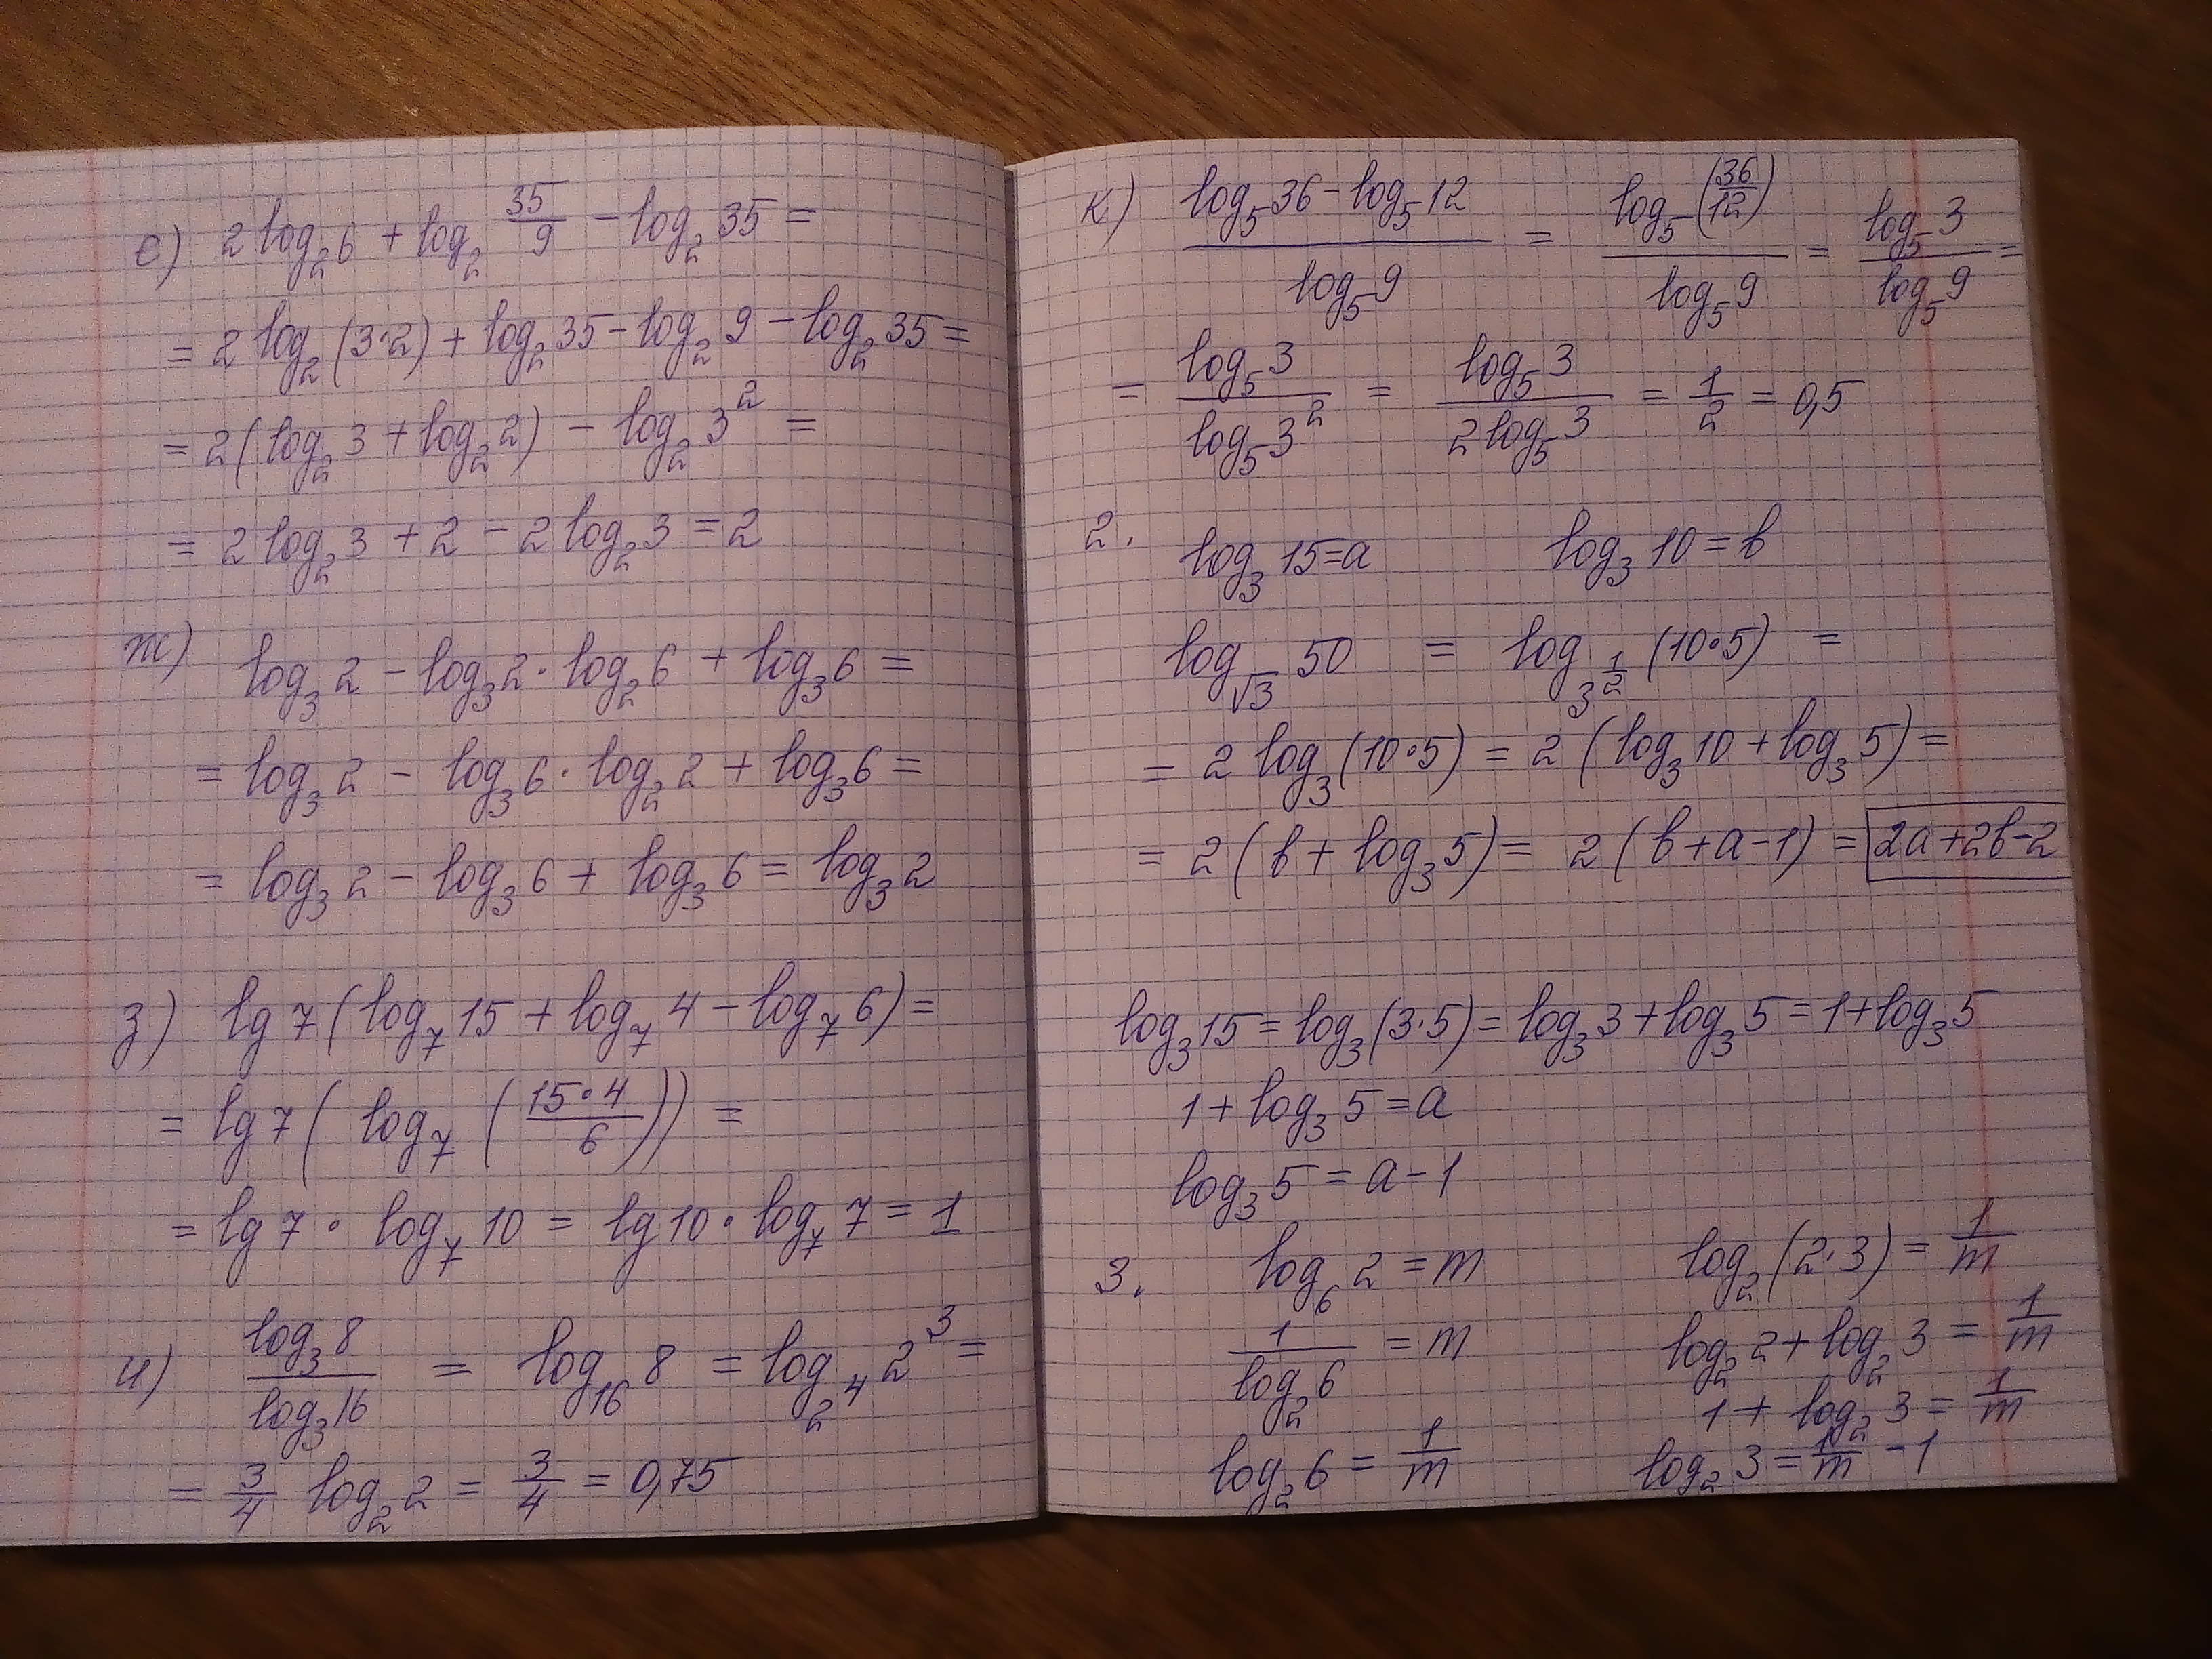 е) 2 log₂ 6 + log₂ 35/9 − log₂ 35 =
= 2 log₂ (3·2) + log₂ 35 − log₂ 9 − log₂ 35 =
= 2 (log₂ 3 + log₂ 2) − log₂ 3² =
= 2 log₂ 3 + 2 − 2 log₂ 3 = 2
ж) log₃ 2 − log₃ 2 · log₂ 6 + log₃ 6 =
= log₃ 2 − log₃ 6 · log₂ 2 + log₃ 6 =
= log₃ 2 − log₃ 6 + log₃ 6 = log₃ 2
з) lg 7 (log₇ 15 + log₇ 4 − log₇ 6) =
= lg 7 ( log₇ ( (15·4)/6 )) =
= lg 7 · log₇ 10 = lg 10 · log₇ 7 = 1
и) (log₃ 8)/(log₃ 16) = log₁₆ 8 = log_(2⁴) 2³ =
= 3/4 log₂ 2 = 3/4 = 0,75
к) (log₅ 36 − log₅ 12)/(log₅ 9) = (log₅ (36/12))/(log₅ 9) = (log₅ 3)/(log₅ 9) =
= (log₅ 3)/(log₅ 3²) = (log₅ 3)/(2 log₅ 3) = 1/2 = 0,5
2. log₃ 15 = a log₃ 10 = b
log_(√3) 50 = log_(3^(1/2)) (10·5) =
= 2 log₃ (10·5) = 2 (log₃ 10 + log₃ 5) =
= 2 (b + log₃ 5) = 2 (b + a − 1) = 2a + 2b − 2
log₃ 15 = log₃ (3·5) = log₃ 3 + log₃ 5 = 1 + log₃ 5
1 + log₃ 5 = a
log₃ 5 = a − 1
3. log₆ 2 = m
1/(log₂ 6) = m
log₂ 6 = 1/m
log₂ (2·3) = 1/m
log₂ 2 + log₂ 3 = 1/m
1 + log₂ 3 = 1/m
log₂ 3 = 1/m − 1